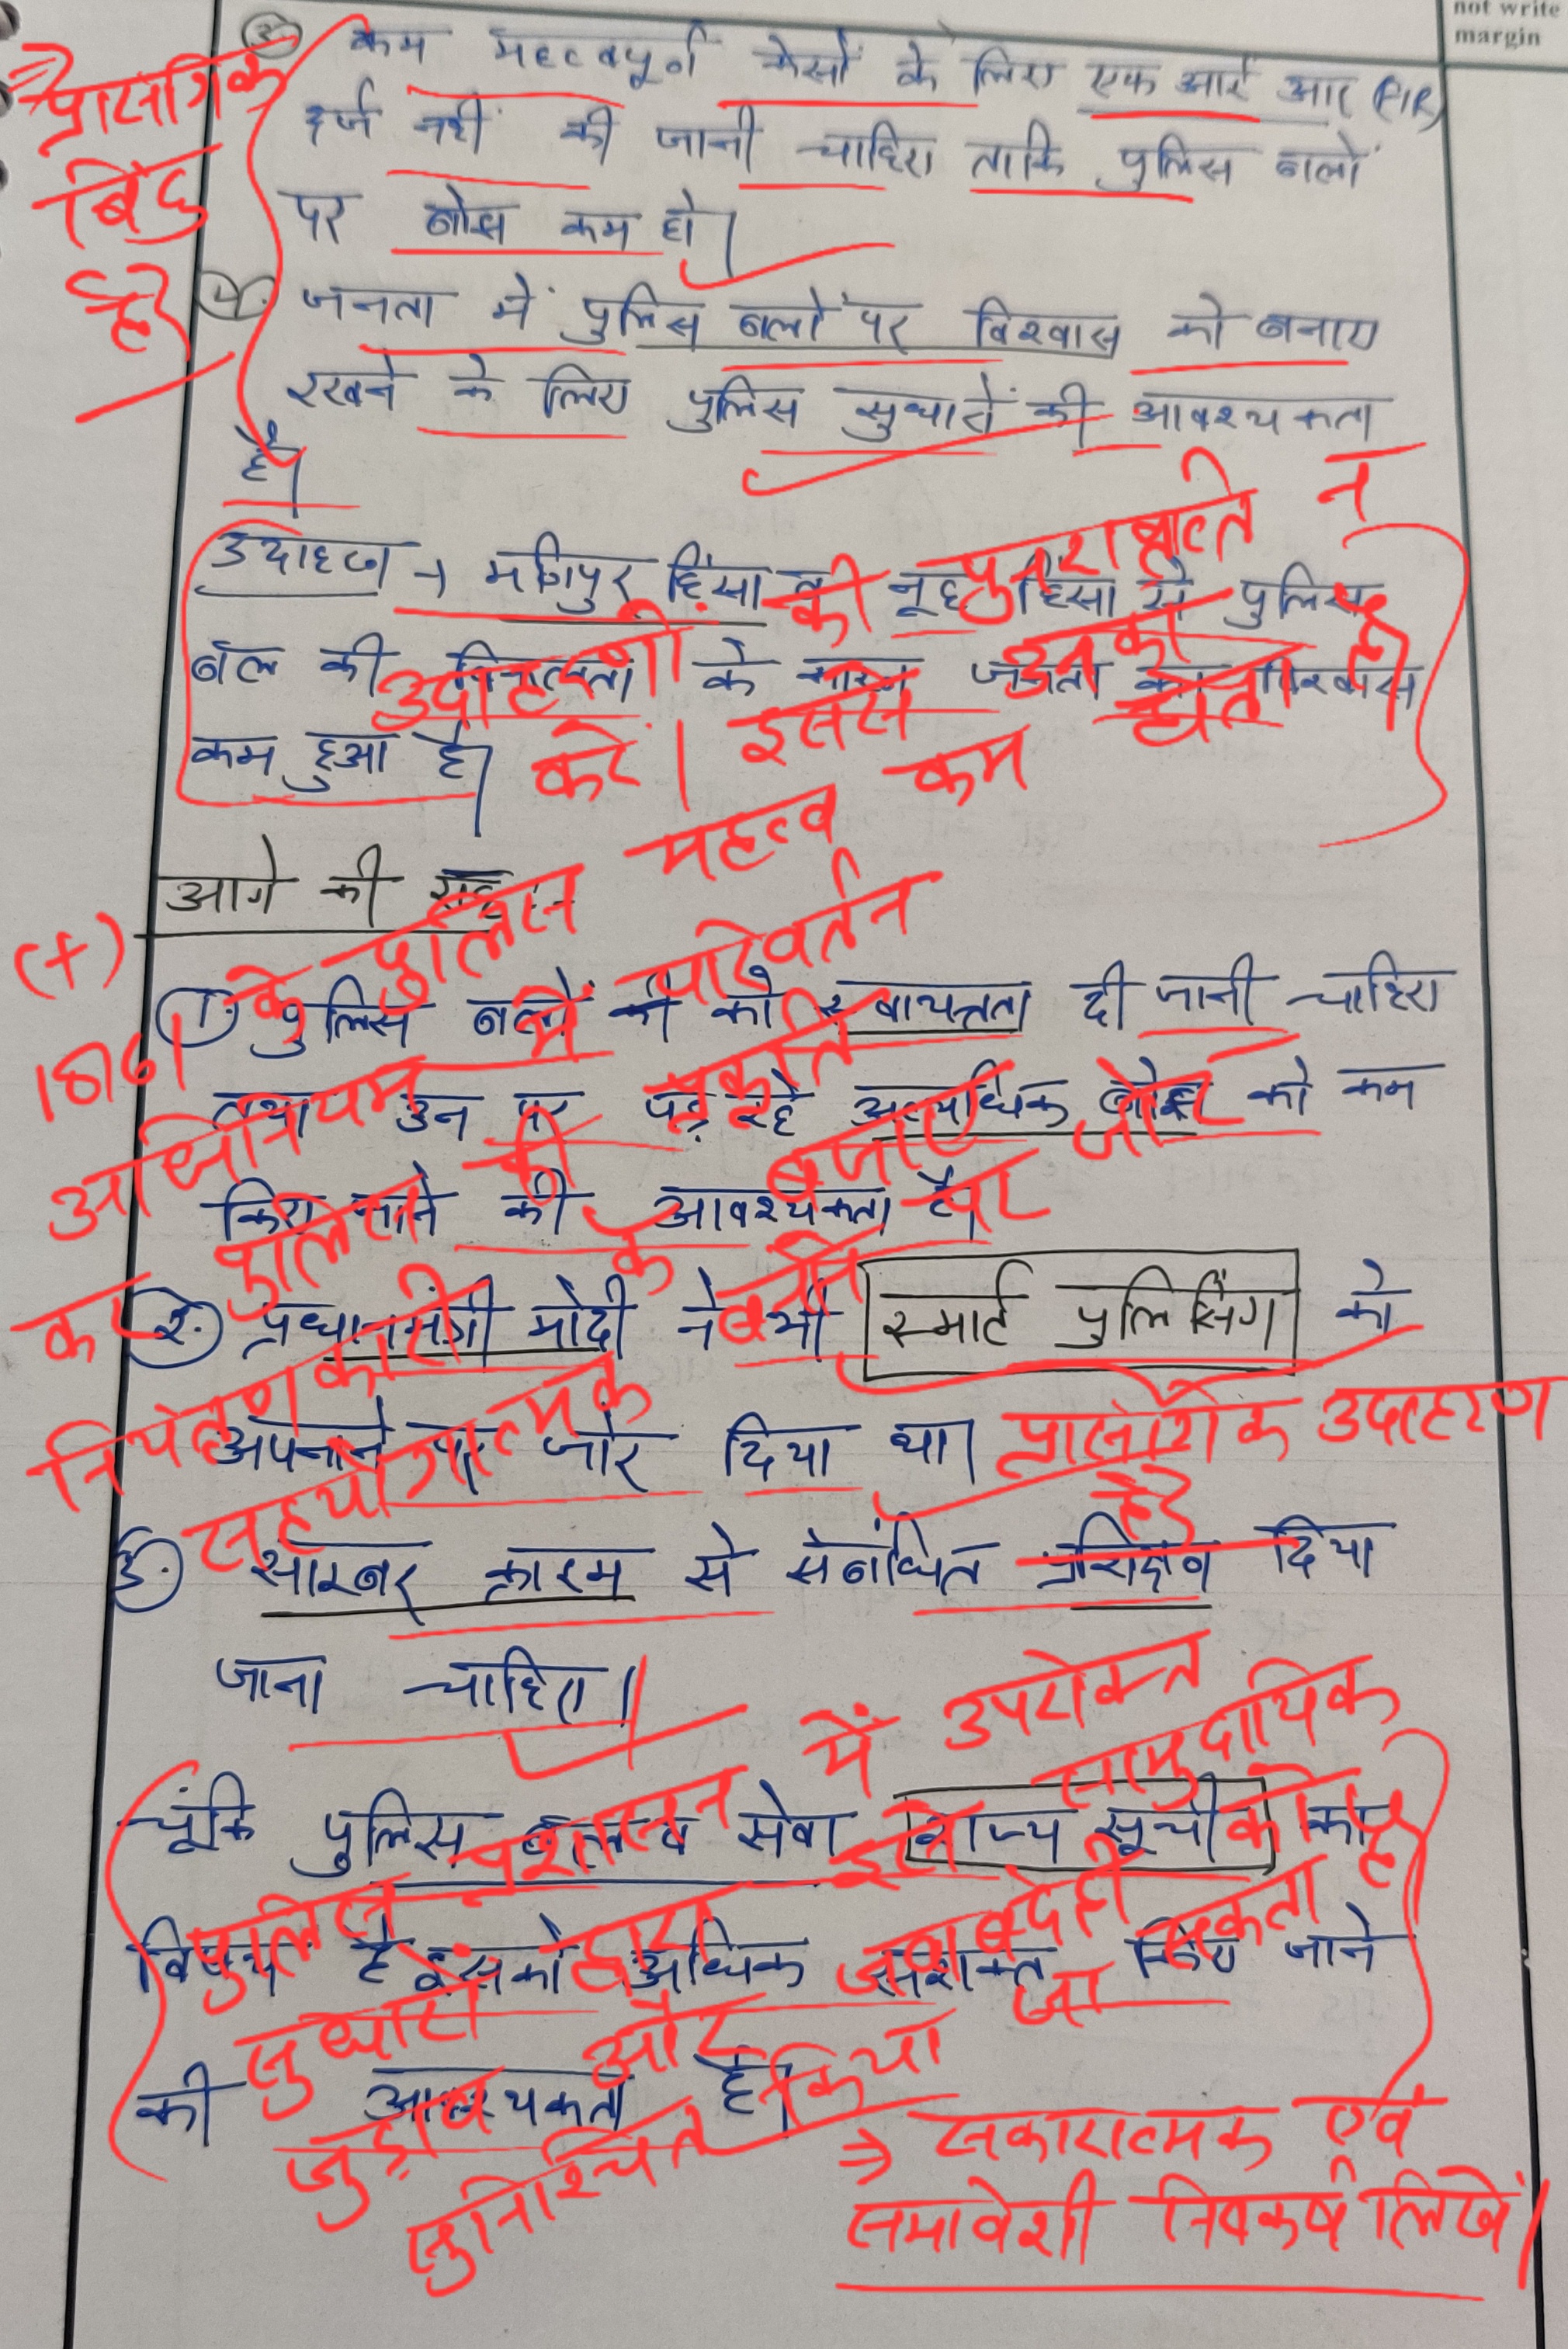 not write
margin
③ कम महत्वपूर्ण केसों के लिए एफ आई आर (FIR)
दर्ज नहीं की जानी चाहिए ताकि पुलिस बलों
पर बोझ कम हो।
④. जनता में पुलिस बलों पर विश्वास को बनाए
रखने के लिए पुलिस सुधारों की आवश्यकता
है।
⇒ प्रासंगिक
बिंदु
हैं
उदाहरण → मणिपुर हिंसा व नूह हिंसा से पुलिस
बल की के कारण जनता का विश्वास
कम हुआ है।
उदाहरणों की पुनरावृत्ति न
करें। इससे उनका
महत्व कम होता है
आगे की राह
① पुलिस बलों को स्वायत्तता दी जानी चाहिए
तथा उन पर पड़ रहे अत्यधिक बोझ को कम
किए जाने की आवश्यकता है।
②. प्रधानमंत्री मोदी ने भी स्मार्ट पुलिसिंग को
अपनाने पर जोर दिया था।
प्रासंगिक उदाहरण
है
(+)
1861 के पुलिस
अधिनियम में परिवर्तन
कर पुलिस की प्रकृति
नियंत्रणकारी के बजाए
सहयोगात्मक बनाने पर जोर
3. साइबर क्राइम से संबंधित प्रशिक्षण दिया
जाना चाहिए।
चूंकि पुलिस बल व सेवा राज्य सूची का
विषय है इसको अधिक सशक्त किए जाने
की आवश्यकता है।
पुलिस प्रशासन में उपरोक्त
सुधारों द्वारा इसे सामुदायिक
जुड़ाव और जवाबदेही को
सुनिश्चित किया जा सकता है
⇒ सकारात्मक एवं
समावेशी निष्कर्ष लिखें।